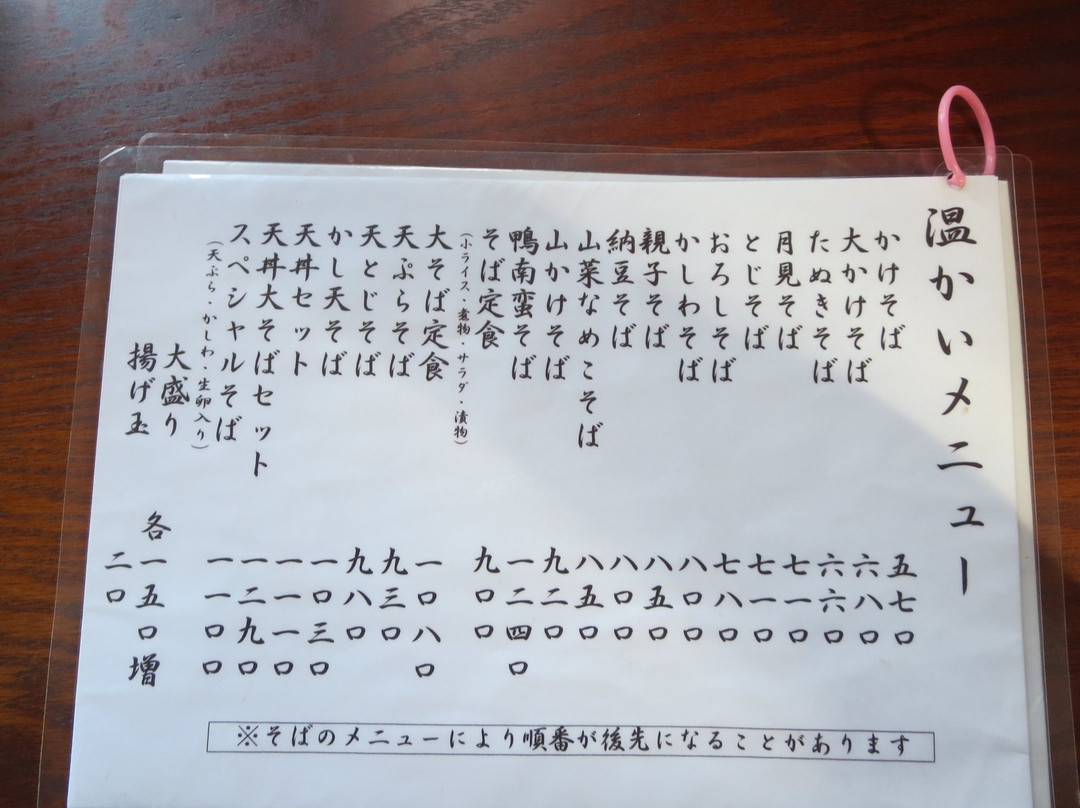 温かいメニュー
かけそば 五七〇
大かけそば 六八〇
たぬきそば 六六〇
月見そば 七一〇
とじそば 七一〇
おろしそば 七八〇
かしわそば 八〇〇
親子そば 八五〇
納豆そば 八〇〇
山菜なめこそば 八五〇
山かけそば 九二〇
鴨南蛮そば 一二四〇
そば定食 九〇〇
(小ライス・煮物・サラダ・漬物)
大そば定食 一〇八〇
天ぷらそば 九三〇
天とじそば 九八〇
かし天そば 一〇三〇
天丼セット 一一一〇
天丼大そばセット 一二九〇
スペシャルそば 一一〇〇
(天ぷら・かしわ・生卵入り)
大盛り 各一五〇増
揚げ玉 二〇
※そばのメニューにより順番が後先になることがあります